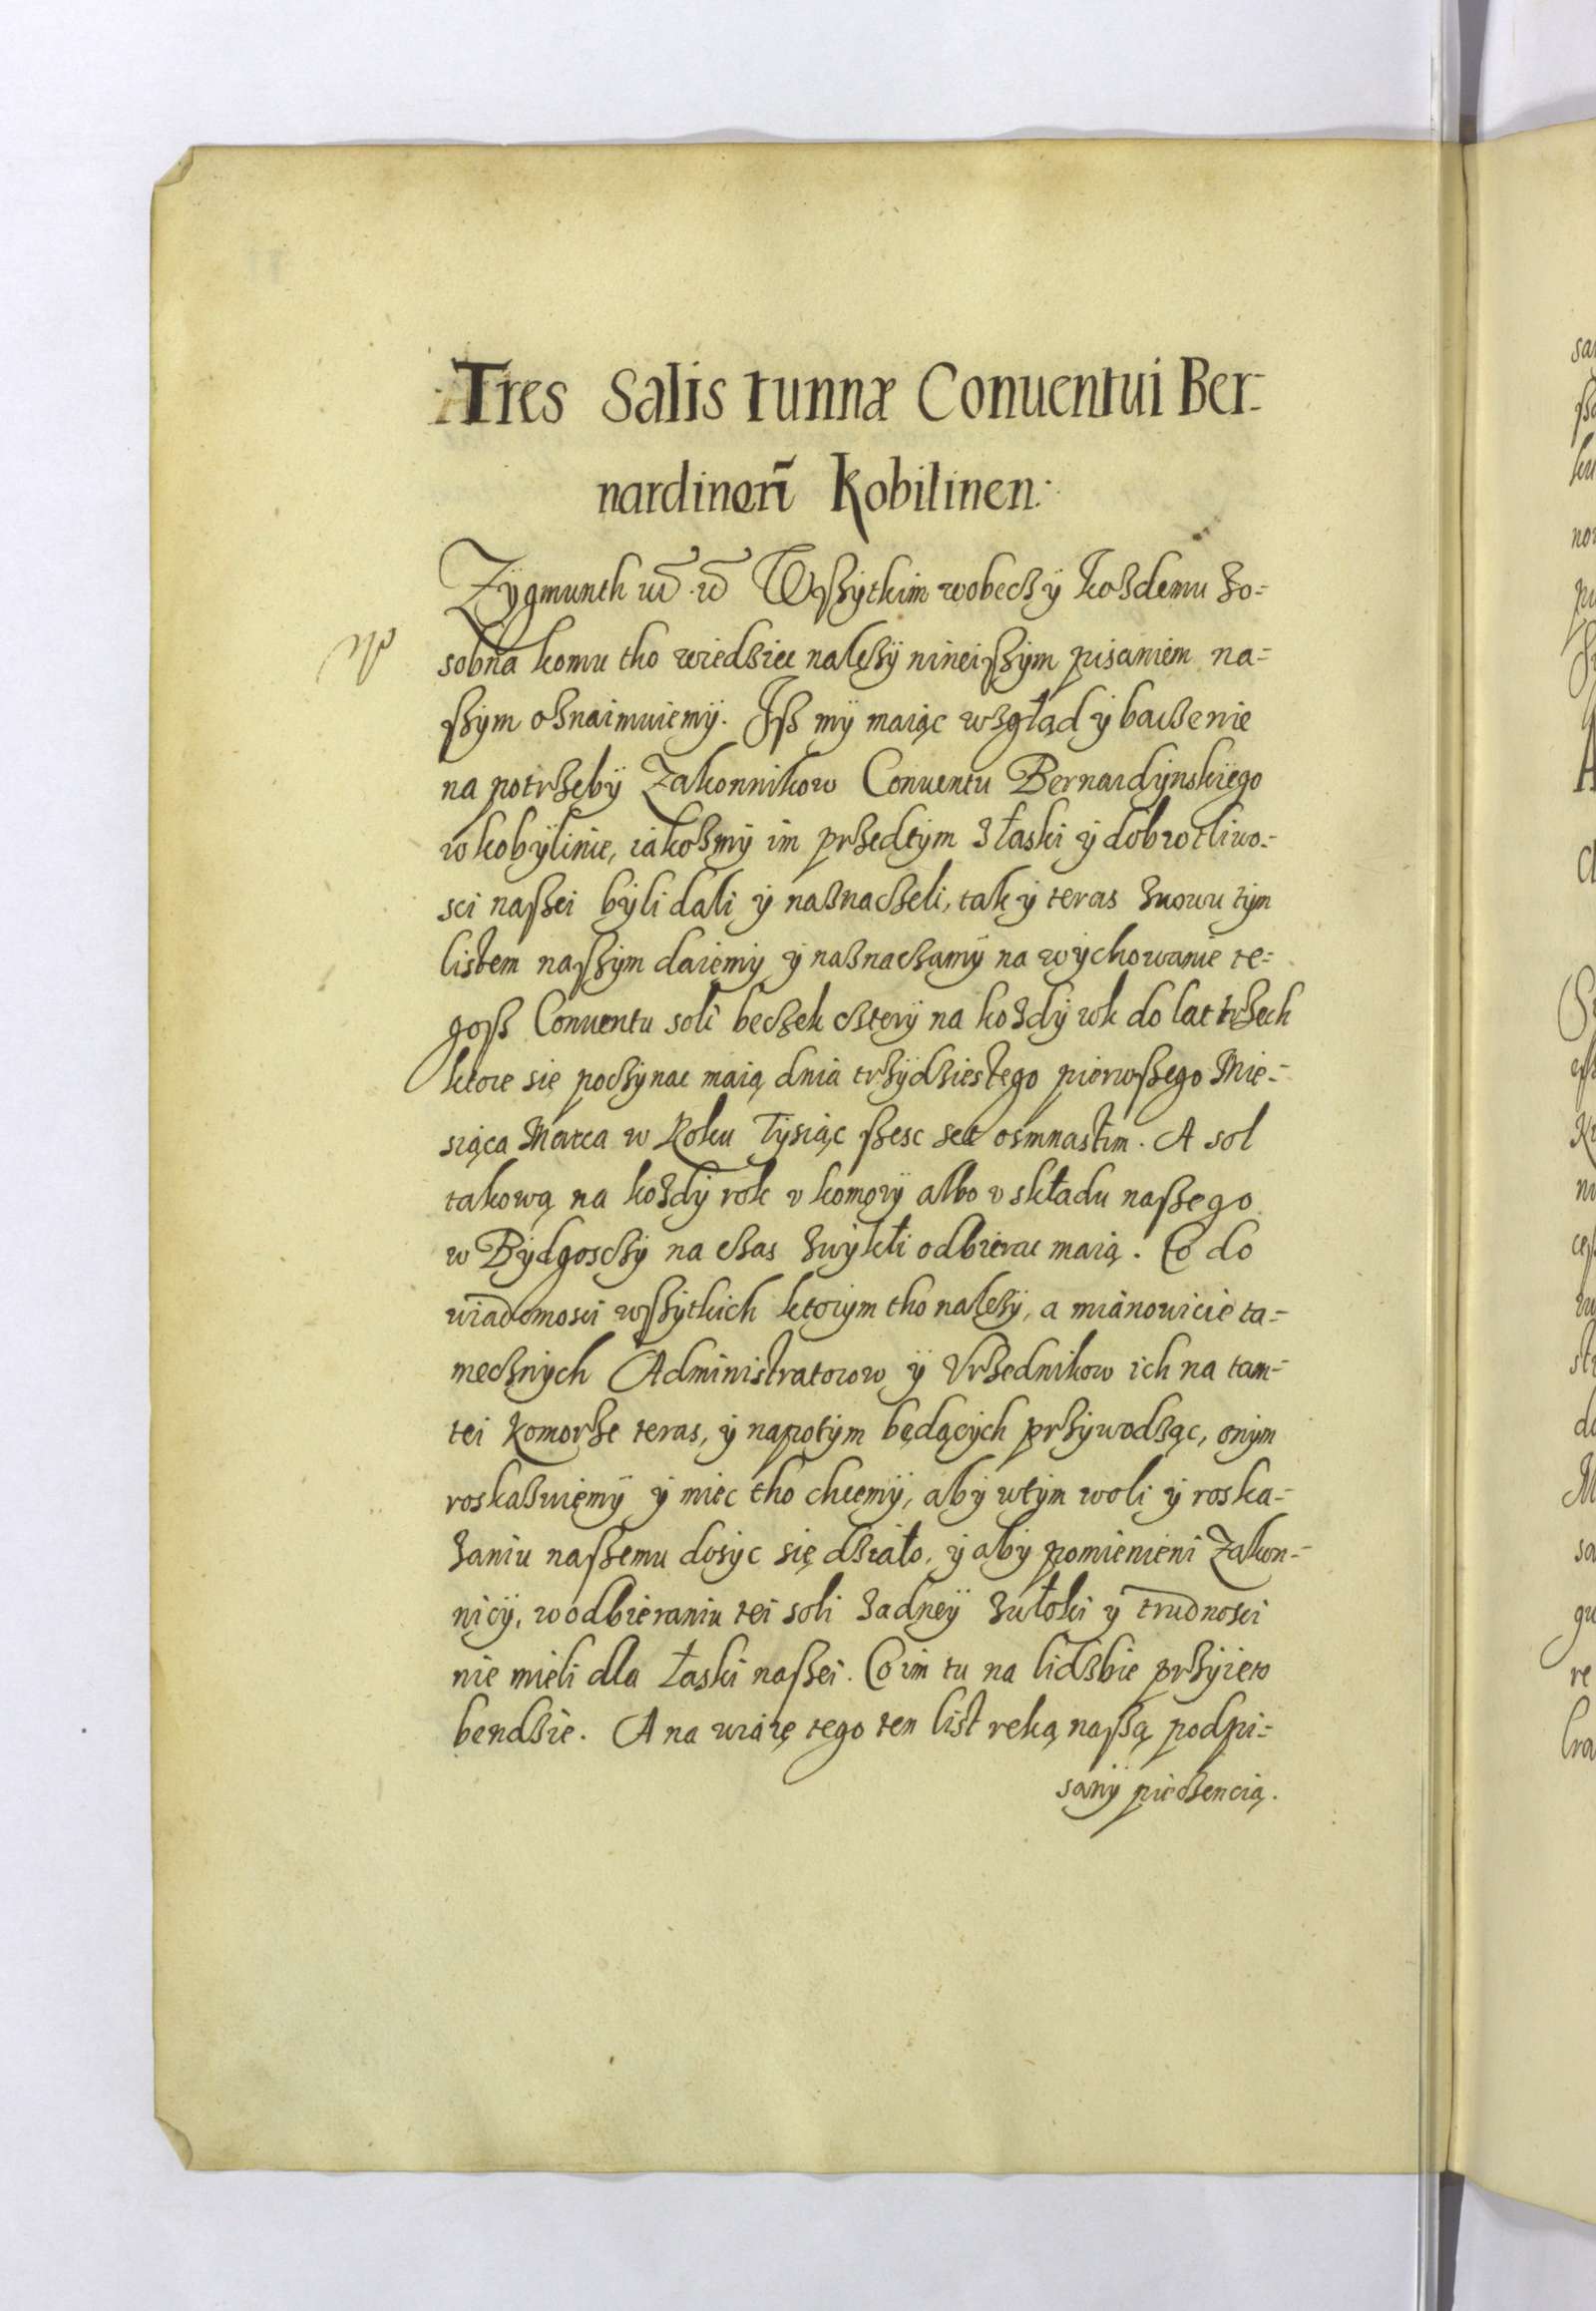 Tres Salis tunnæ Conuentui Ber-
nardinorũ Kobilinen:
Zÿgmunth ... Wszÿtkim wobeczÿ Kozdemu zo-
sobna komu tho wiedziec nalezÿ nineiszÿm pisaniem na-
szÿm oznaimuiemÿ. Isz mÿ maiąc wzgłąd ÿ baczenie
na potrzebÿ Zakonnikow Conuentu Bernardÿnskiego
w kobÿlinie, iakozmÿ im przedtÿm z łaski ÿ dobrotliwo-
sci naszei bÿli dali ÿ naznaczeli, tak ÿ teras znowu tÿm
listem naszÿm daiemÿ ÿ naznaczamÿ na wÿchowanie te-
gosz Conuentu soli beczek czterÿ na kozdÿ rok do lat trzech
ktore się poczÿnac maią dnia trzÿdziestego pierwszego Mie-
siąca Marca w Roku Tÿsiąc szesc set osmnastim. A sol
takową na kozdÿ rok v komorÿ albo v składu naszego
w Bÿdgosczÿ na czas zwÿkłi odbierac maią. Co do
wiadomosci wszÿtkich ktorÿm tho nalezÿ, a mianowicie ta-
mecznÿch Administratorow ÿ Vrzednikow ich na tam-
tei Komorze teras, ÿ napotÿm będącÿch przÿwodząc, onÿm
roskazuiemÿ ÿ miec tho chcemÿ, abÿ wtÿm woli ÿ roska-
zaniu naszemu dosÿc się działo, ÿ abÿ pomienieni Zakon-
nicÿ, w odbieraniu tei soli zadneÿ zwłoki ÿ trudnosci
nie mieli dla łaski naszei. Co im tu na lidzbie przÿieto
bendzie. A na wiarę tego ten list reką naszą podpi-
sanÿ pieczencią.